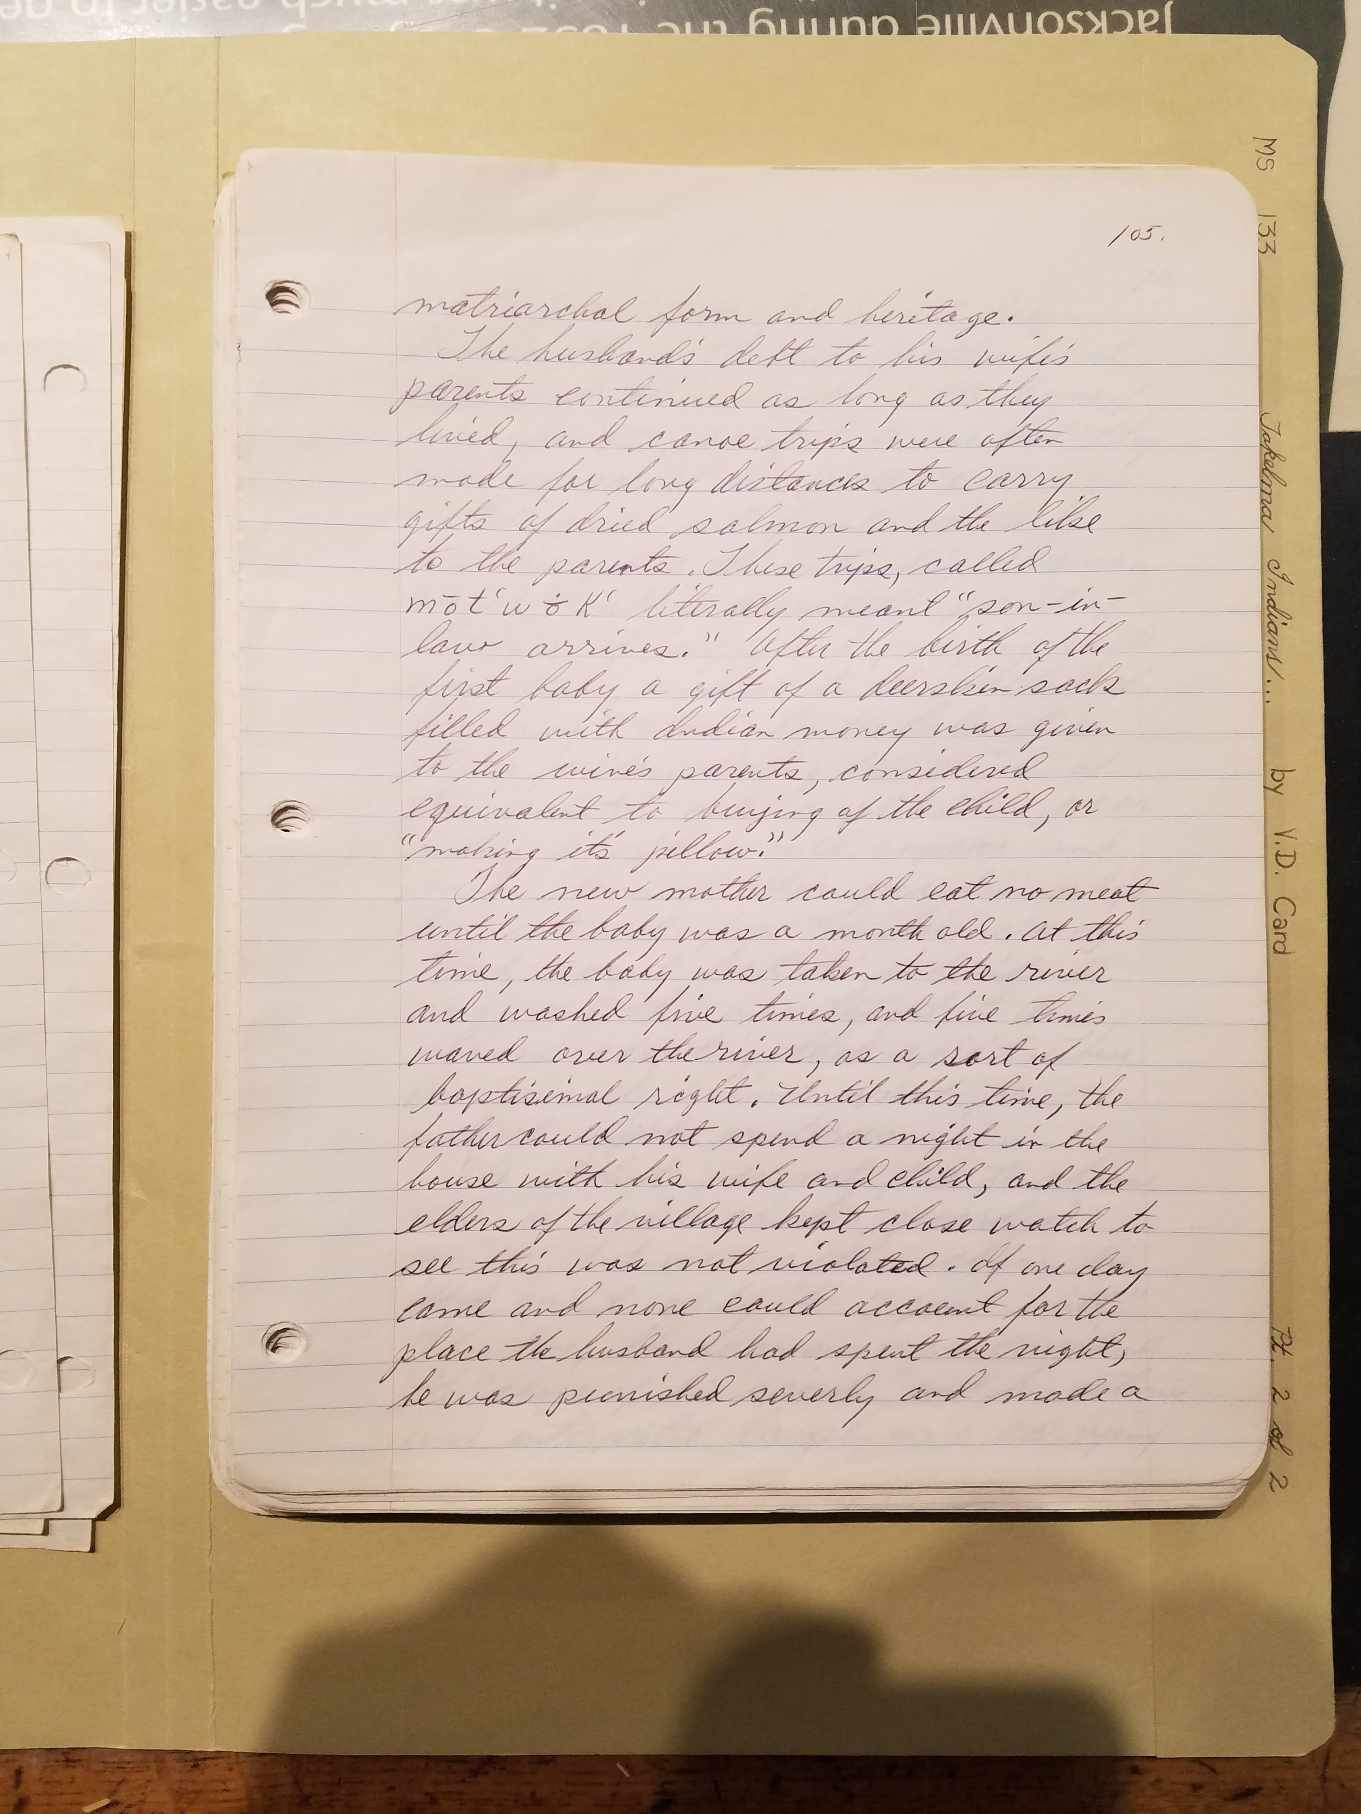 Jacksonville during the 1852
much easier to ge
MS 133 Takelma Indians... by V.D. Card Pt. 2 of 2
105.
matriarchal form and heritage.
The husband's debt to his wife's
parents continued as long as they
lived, and canoe trips were often
made for long distances to carry
gifts of dried salmon and the like
to the parents. These trips, called
literally meant "son-in-
law arrives." After the birth of the
first baby a gift of a deerskin sack
filled with Indian money was given
to the wive's parents, considered
equivalent to buying of the child, or
"making it's pillow."
The new mother could eat no meat
until the baby was a month old. At this
time, the baby was taken to the river
and washed five times, and five times
waved over the river, as a sort of
baptisimal right. Until this time, the
father could not spend a night in the
house with his wife and child, and the
elders of the village kept close watch to
see this was not violated. If one day
came and none could account for the
place the husband had spent the night,
he was punished severly and made a